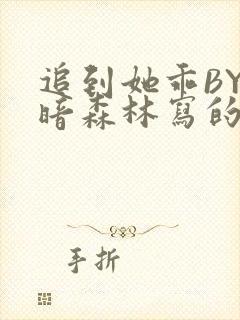 追到她乖BY
暗森林寫的
手折